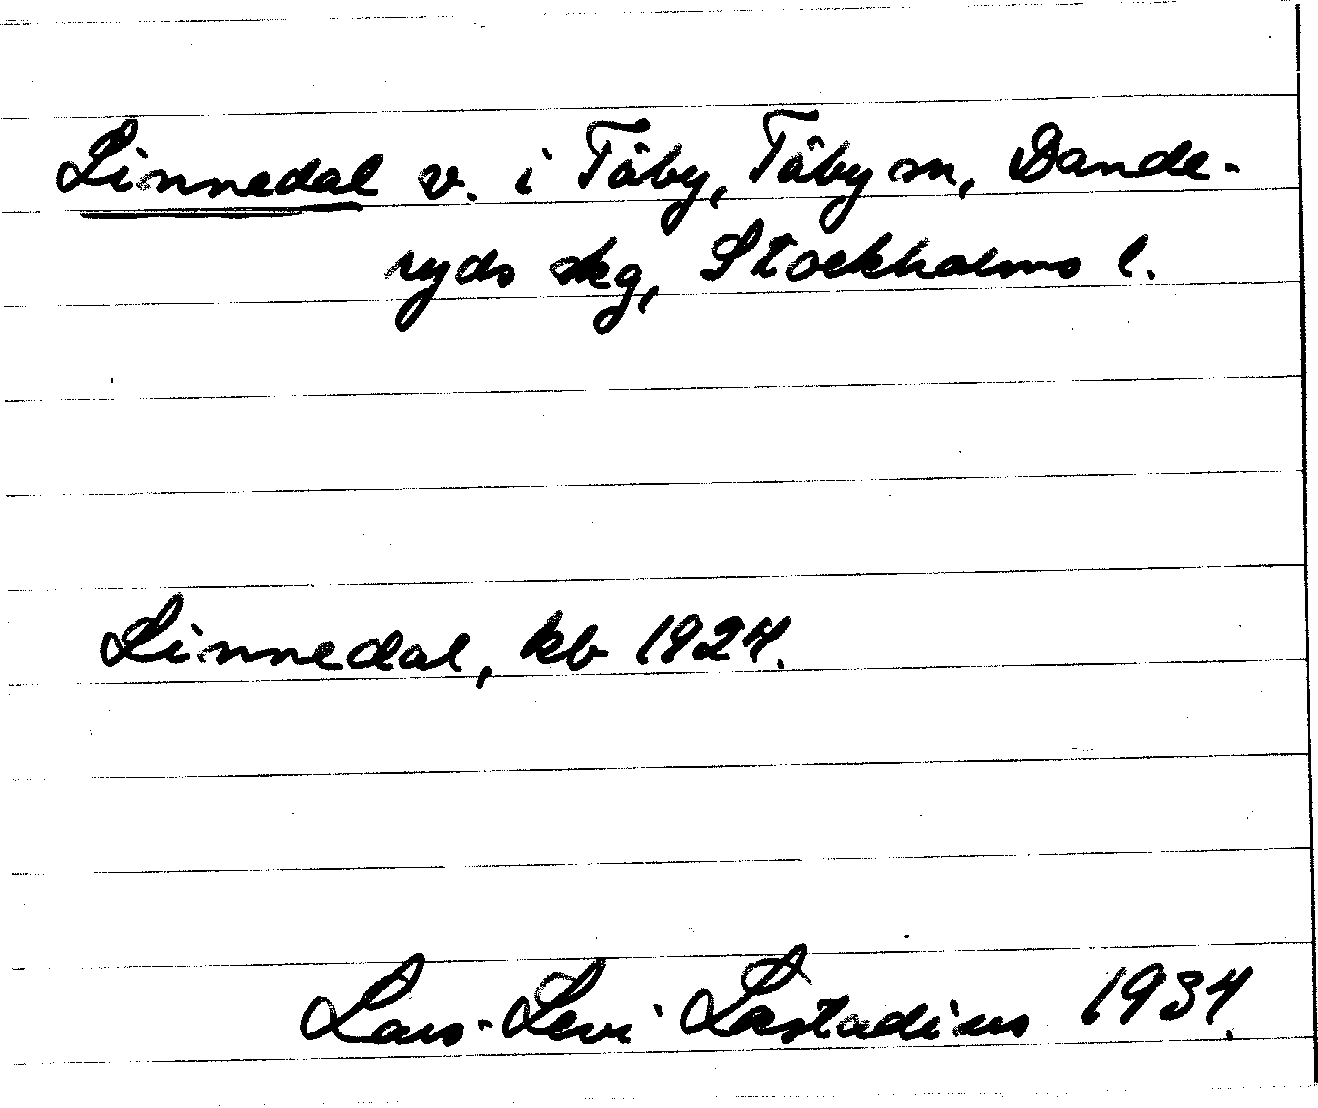 Linnedal v. i Täby, Täby sn, Dande-
ryds skg, Stockholms l.
Linnedal, kb 1924.
Lars-Levi Læstadius 1934.